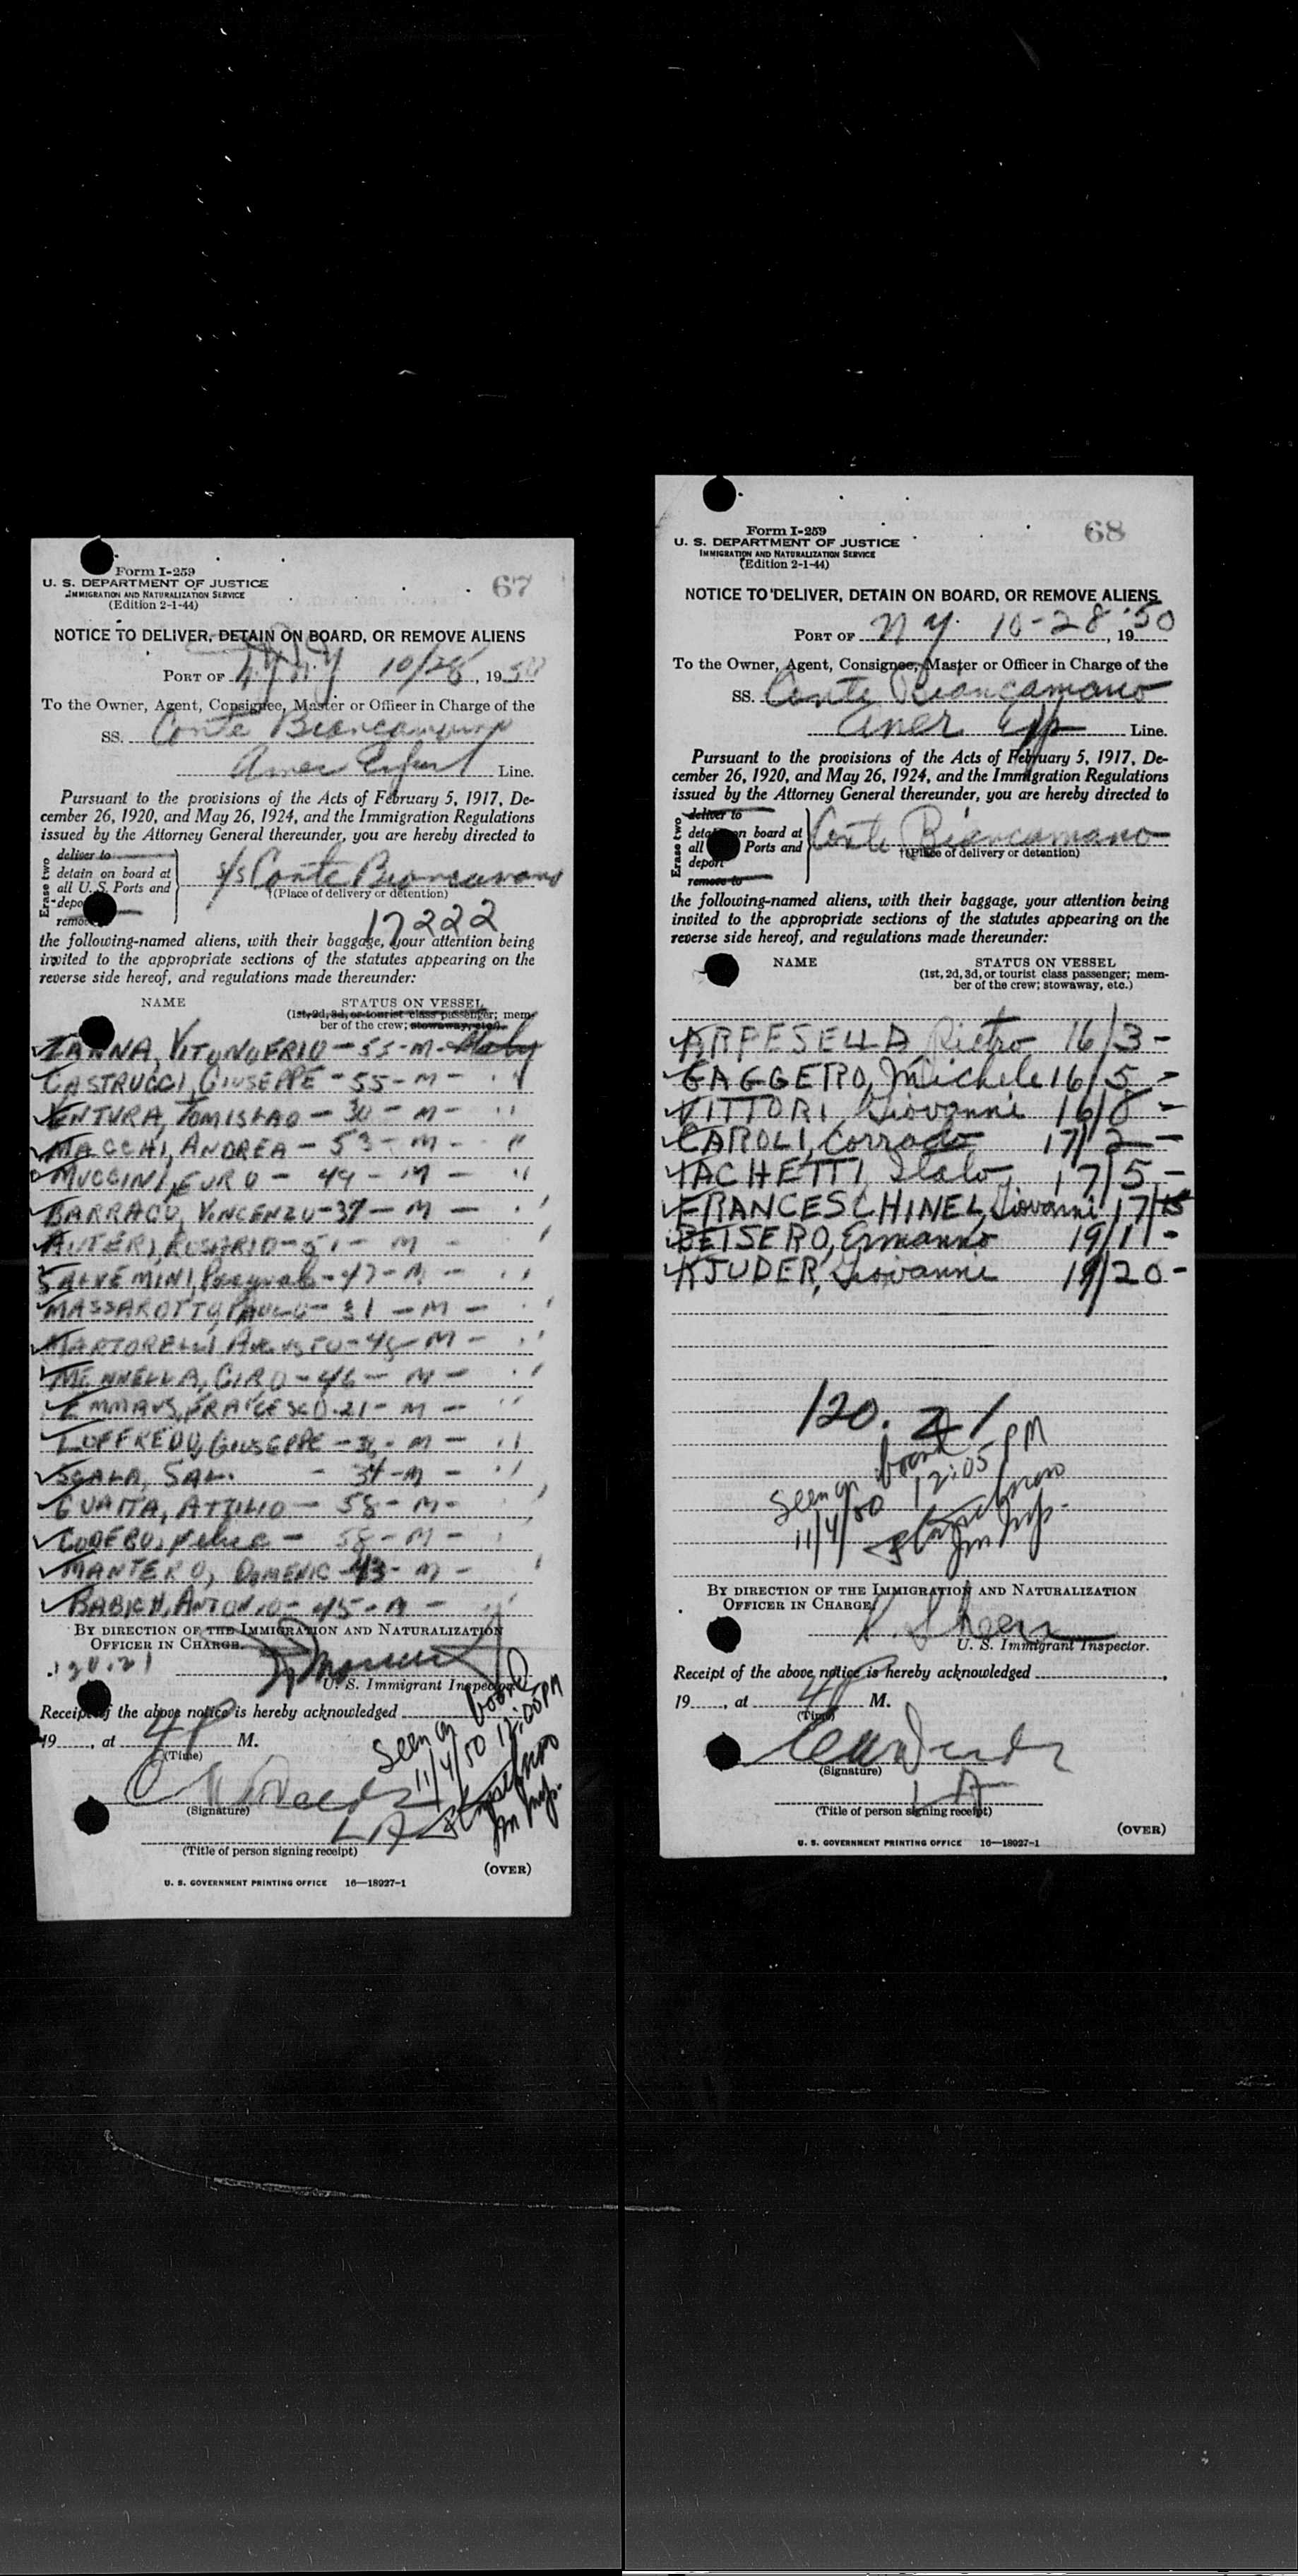 Form I-259
U. S. DEPARTMENT OF JUSTICE
IMMIGRATION AND NATURALIZATION SERVICE
(Edition 2-1-44)
67
NOTICE TO DELIVER, DETAIN ON BOARD, OR REMOVE ALIENS
PORT OF N.Y. N.Y 10/28, 1950
To the Owner, Agent, Consignee, Master or Officer in Charge of the
SS. Conte Biancamano
Amer Export Line.
Pursuant to the provisions of the Acts of February 5, 1917, De-
cember 26, 1920, and May 26, 1924, and the Immigration Regulations
issued by the Attorney General thereunder, you are hereby directed to
Erase two
deliver to
detain on board at
all U. S. Ports and
depo
remo
S/S Conte Biancamano
†(Place of delivery or detention)
17222
the following-named aliens, with their baggage, your attention being
invited to the appropriate sections of the statutes appearing on the
reverse side hereof, and regulations made thereunder:
NAME STATUS ON VESSEL
(1st, 2d, 3d, or tourist class passenger; mem-
ber of the crew; stowaway, etc.)
ZANNA, VITONOFRIO - 55 - M - Italy
CASTRUCCI, GIUSEPPE - 55 - M - "
VENTURA, TOMISLAO - 30 - M - "
MACCHI, ANDREA - 53 - M - "
MUCCINI, EURO - 49 - M - "
BARRACO, VINCENZO - 37 - M - "
AUTERI, ROSARIO - 51 - M - "
SALVEMINI, - 47 - M - "
MASSAROTTO, PAOLO - 31 - M - "
MARTORELLI, AUGUSTO - 45 - M - "
MENNELLA, CIRO - 46 - M - "
EMMAUS, FRANCESCO - 21 - M - "
LOFFREDO, GIUSEPPE - M - "
SCALA, SAL. - 34 - M - "
GUAITA, ATTILIO - 58 - M - "
CODEBO, Felice - 58 - M - "
MANTERO, DOMENIC - 43 - M - "
BABICH, ANTONIO - 45 - M - "
BY DIRECTION OF THE IMMIGRATION AND NATURALIZATION
OFFICER IN CHARGE.
120.21
U. S. Immigrant Inspector.
Receipt of the above notice is hereby acknowledged
19, at 4P M.
(Time)
Seen on board
11/4/50 12:05PM
Im Insp.
(Signature)
(Title of person signing receipt)
(OVER)
U. S. GOVERNMENT PRINTING OFFICE 16—18927-1
Form I-259
U. S. DEPARTMENT OF JUSTICE
IMMIGRATION AND NATURALIZATION SERVICE
(Edition 2-1-44)
68
NOTICE TO DELIVER, DETAIN ON BOARD, OR REMOVE ALIENS
PORT OF N Y. 10-28, 19'50
To the Owner, Agent, Consignee, Master or Officer in Charge of the
SS. Conte Biancamano
Amer Exp Line.
Pursuant to the provisions of the Acts of February 5, 1917, De-
cember 26, 1920, and May 26, 1924, and the Immigration Regulations
issued by the Attorney General thereunder, you are hereby directed to
Erase two
deliver to
deta on board at
all Ports and
deport
remove to
Conte Biancamano
†(Place of delivery or detention)
the following-named aliens, with their baggage, your attention being
invited to the appropriate sections of the statutes appearing on the
reverse side hereof, and regulations made thereunder:
NAME STATUS ON VESSEL
(1st, 2d, 3d, or tourist class passenger; mem-
ber of the crew; stowaway, etc.)
ARPESELLA Pietro 16/3 -
GAGGERO, Michele 16/5 -
VITTORI, Giovanni 16/8 -
CAROLI, Corrado 17/2 -
IACHETTI, Italo, 17/5 -
FRANCESCHINEL, Giovanni 17/15
BEISERO, Ermanno 19/11 -
KJUDER, Giovanni 19/20 -
120. 21
Seen on board
11/4/50 12:05 PM
Im Insp.
BY DIRECTION OF THE IMMIGRATION AND NATURALIZATION
OFFICER IN CHARGE.
U. S. Immigrant Inspector.
Receipt of the above notice is hereby acknowledged
19, at 4P M.
(Time)
(Signature)
(Title of person signing receipt)
(OVER)
U. S. GOVERNMENT PRINTING OFFICE 16—18927-1